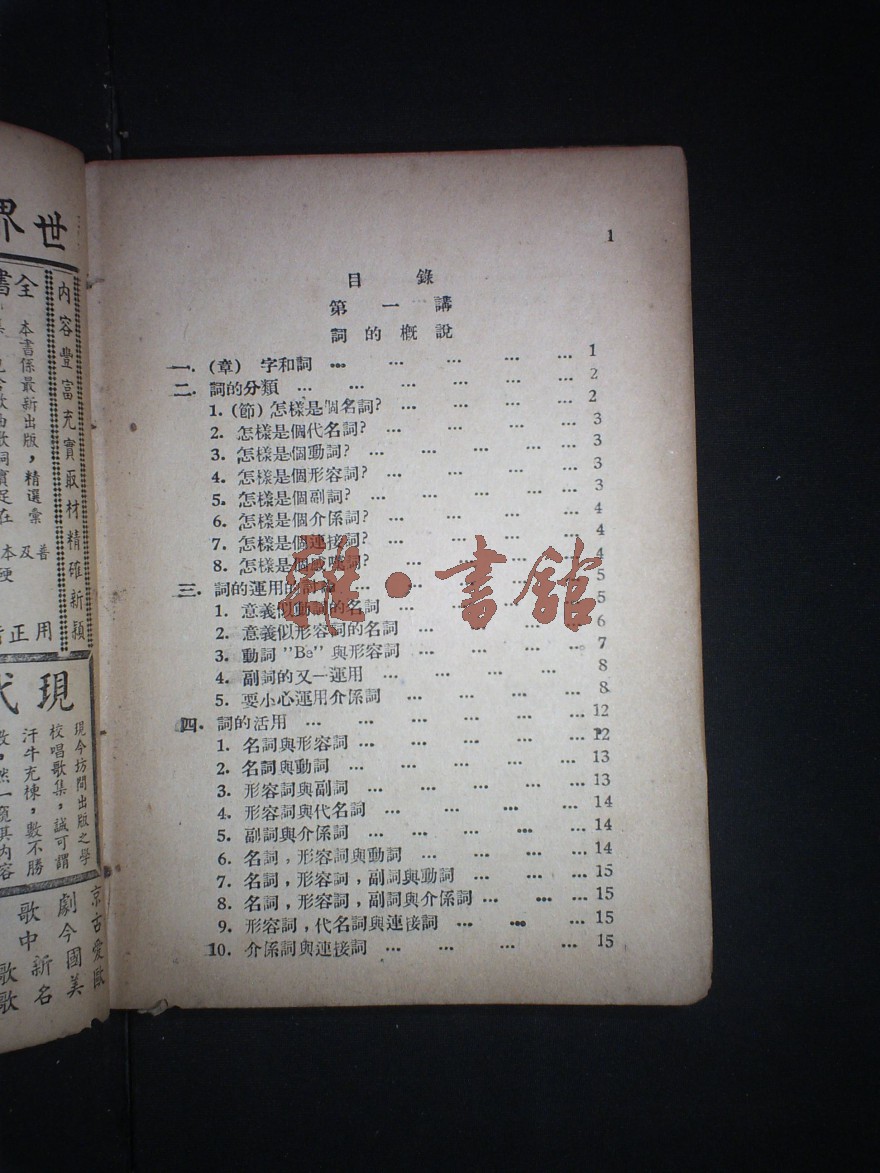 1
目 錄
第 一 講
詞 的 概 說
一. (章) 字和詞 ... ... ... ... ... 1
二. 詞的分類 ... ... ... ... ... ... 2
1. (節) 怎樣是個名詞? ... ... ... ... 2
2. 怎樣是個代名詞? ... ... ... ... 3
3. 怎樣是個動詞? ... ... ... ... ... 3
4. 怎樣是個形容詞? ... ... ... ... 3
5. 怎樣是個副詞? ... ... ... ... ... 3
6. 怎樣是個介係詞? ... ... ... ... 4
7. 怎樣是個連接詞? ... ... ... ... 4
8. 怎樣是個感嘆詞? ... ... ... ... 4
三. 詞的運用的討論 ... ... ... ... ... 5
1. 意義似動詞的名詞 ... ... ... ... 5
2. 意義似形容詞的名詞 ... ... ... ... 6
3. 動詞 "Be" 與形容詞 ... ... ... ... 7
4. 副詞的又一運用 ... ... ... ... 8
5. 要小心運用介係詞 ... ... ... ... 8
四. 詞的活用 ... ... ... ... ... ... 12
1. 名詞與形容詞 ... ... ... ... ... 12
2. 名詞與動詞 ... ... ... ... ... 13
3. 形容詞與副詞 ... ... ... ... ... 13
4. 形容詞與代名詞 ... ... ... ... 14
5. 副詞與介係詞 ... ... ... ... ... 14
6. 名詞,形容詞與動詞 ... ... ... ... 14
7. 名詞,形容詞,副詞與動詞 ... ... ... 15
8. 名詞,形容詞,副詞與介係詞 ... ... ... 15
9. 形容詞,代名詞與連接詞 ... ... ... 15
10. 介係詞與連接詞 ... ... ... ... 15
雜·書館
世界
內容豐富充實取材精確新穎
全書
本書係最新出版,精選彙
現代
現今坊間出版之學
校唱歌集,誠可謂
汗牛充棟,數不勝
數,然一覽其內容
京古愛歐
劇今國美
歌中新名
歌歌